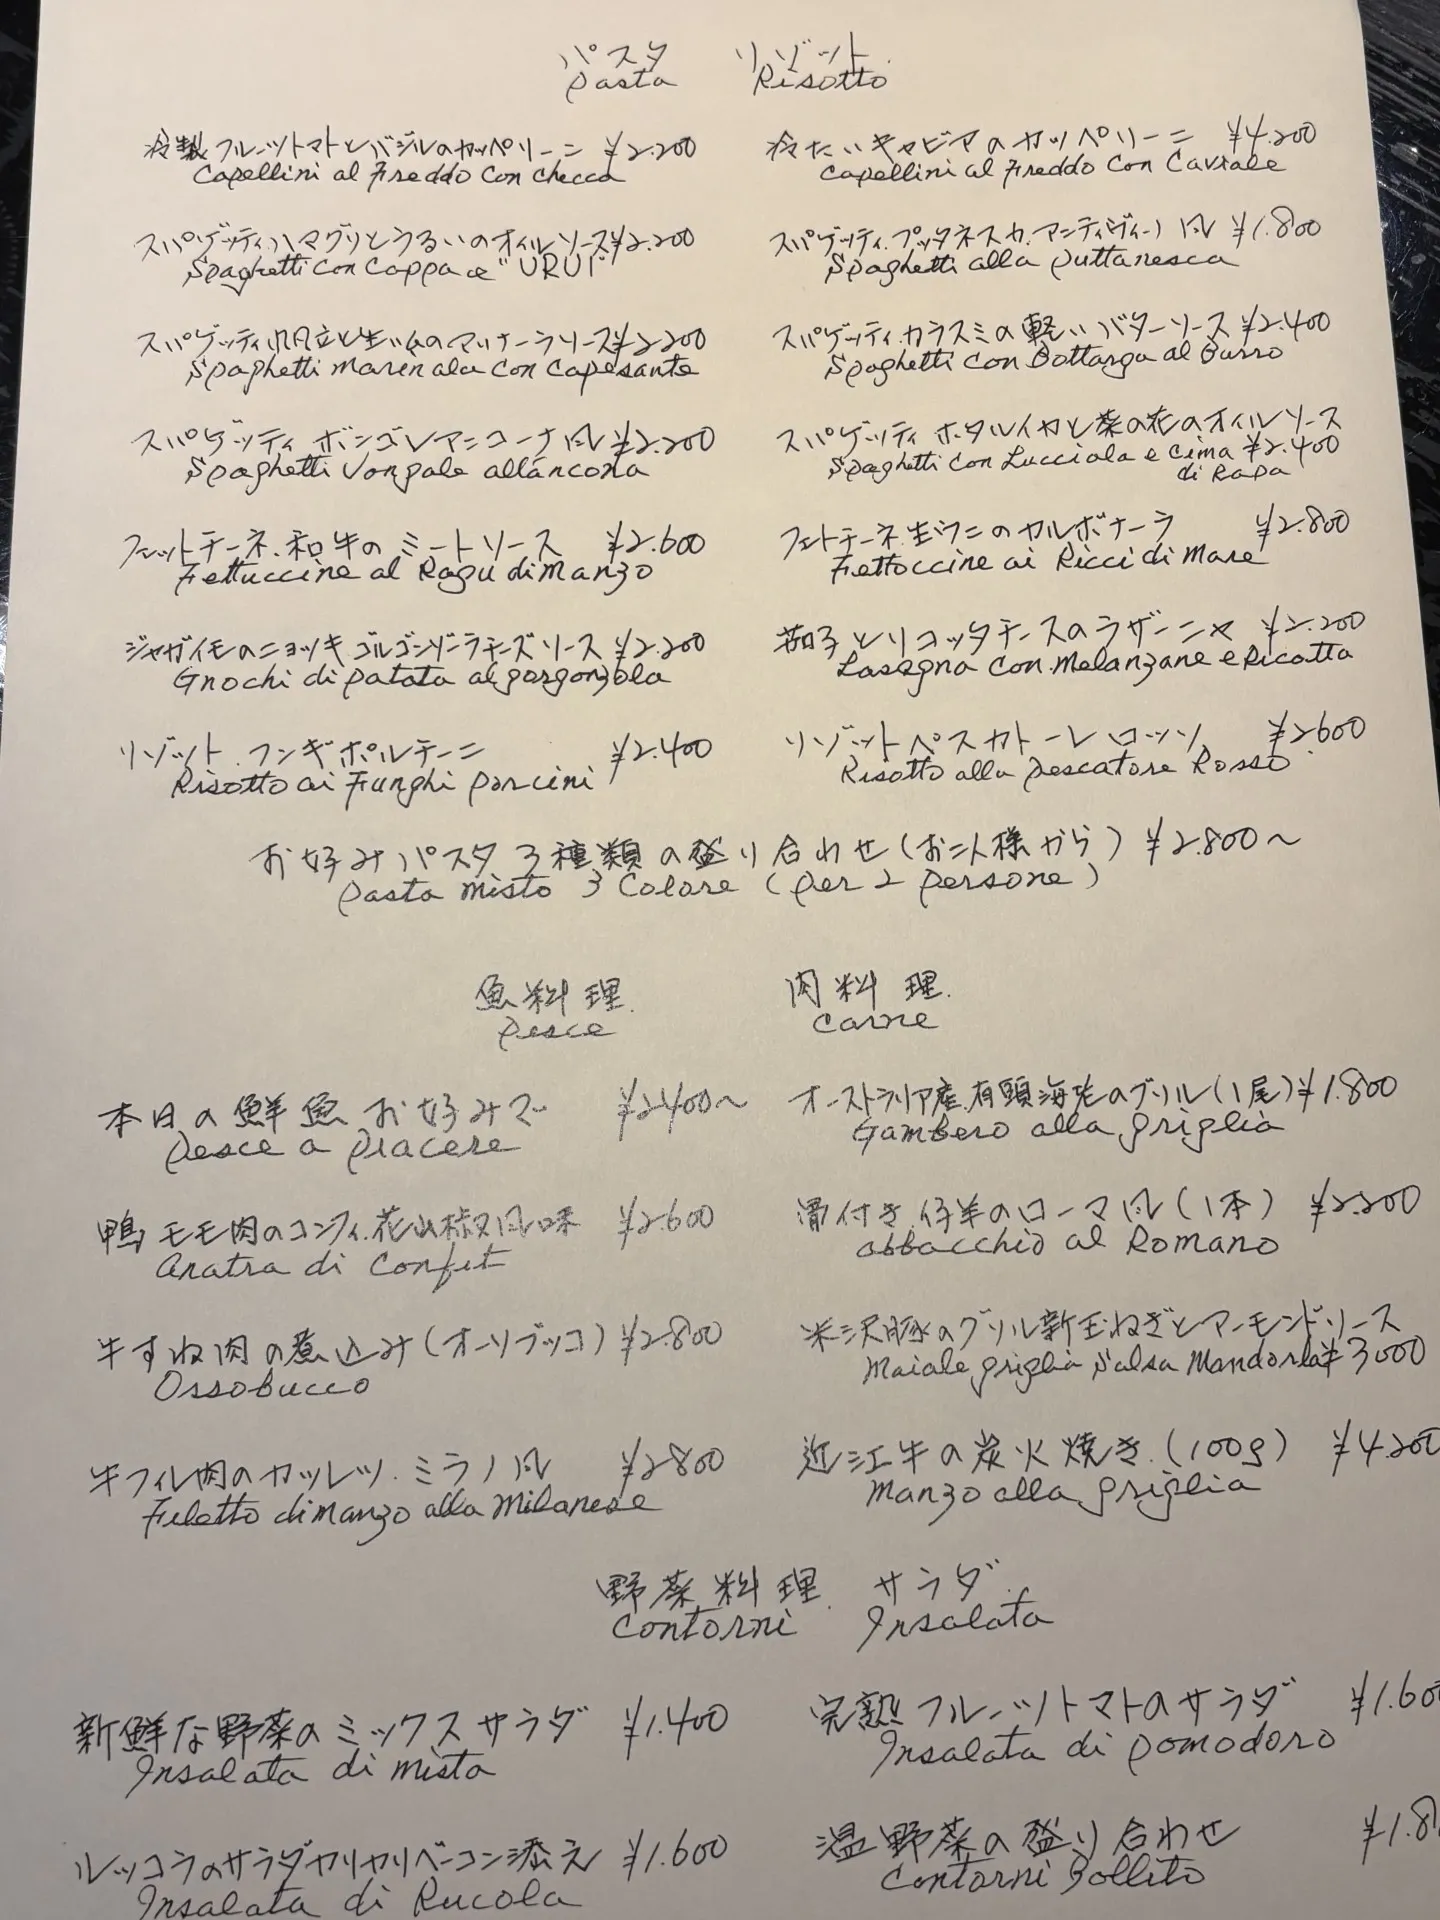 パスタ リゾット
Pasta Risotto
冷製フルーツトマトとバジルのカッペリーニ ¥2.200
Capellini al Freddo con checca
冷たいキャビアのカッペリーニ ¥4.200
Capellini al Freddo con Caviale
スパゲッティ.ハマグリとうるいのオイルソース¥2.200
Spaghetti con Coppa e "URUI"
スパゲッティ.プッタネスカ.アンティヴィーノ風 ¥1.800
Spaghetti alla puttanesca
スパゲッティ.帆立と生ハムのマリナーラソース¥2.200
Spaghetti Marinala con Capesante
スパゲッティ.カラスミの軽いバターソース ¥2.400
Spaghetti con Bottarga al Burro
スパゲッティ ボンゴレアンコーナ風 ¥2.200
Spaghetti Vongale all'ancona
スパゲッティ ホタルイカと菜の花のオイルソース
Spaghetti con Lucciola e cima ¥2.400
di Rapa
フェットチーネ.和牛のミートソース ¥2.600
Fettuccine al Ragu di Manzo
フェトチーネ.生ウニのカルボナーラ ¥2.800
Fettoccine ai Ricci di Mare
ジャガイモのニョッキ ゴルゴンゾーラチーズソース ¥2.200
Gnochi di patata al gorgonzola
茄子とリコッタチースのラザーニャ ¥2.200
Lasagna con.melanzane e Ricotta
リゾット.フンギポルチーニ ¥2.400
Risotto ai Funghi porcini
リゾットペスカトーレロッソ ¥2600
Risotto alla pescatore Rosso
お好みパスタ3種類の盛り合わせ(お二人様から) ¥2.800～
Pasta misto 3 Colore (per 2 persone)
魚料理.
Pesce
肉料理.
Carne
本日の鮮魚お好みで ¥2400～
Pesce a piacere
オーストラリア産.有頭海老のグリル(1尾)¥1.800
Gambero alla griglia
鴨モモ肉のコンフィ.花山椒風味 ¥2.600
Anatra di Confit
骨付き.仔羊のローマ風(1本) ¥2.200
abbacchio al Romano
牛すね肉の煮込み(オーソブッコ) ¥2.800
Ossobucco
米沢豚のグリル新玉ねぎとアーモンドソース
Maiale griglia Salsa Mandorla¥3000
牛フィレ肉のカツレツ.ミラノ風 ¥2800
Filetto di manzo alla Milanese
近江牛の炭火焼き.(100g) ¥4.200
Manzo alla griglia
野菜料理. サラダ.
Contorni Insalata
新鮮な野菜のミックスサラダ ¥1.400
Insalata di mista
完熟フルーツトマトのサラダ ¥1.600
Insalata di pomodoro
ルッコラのサラダカリカリベーコン添え ¥1.600
Insalata di Rucola
温野菜の盛り合わせ ¥1.8
Contorni Bollito